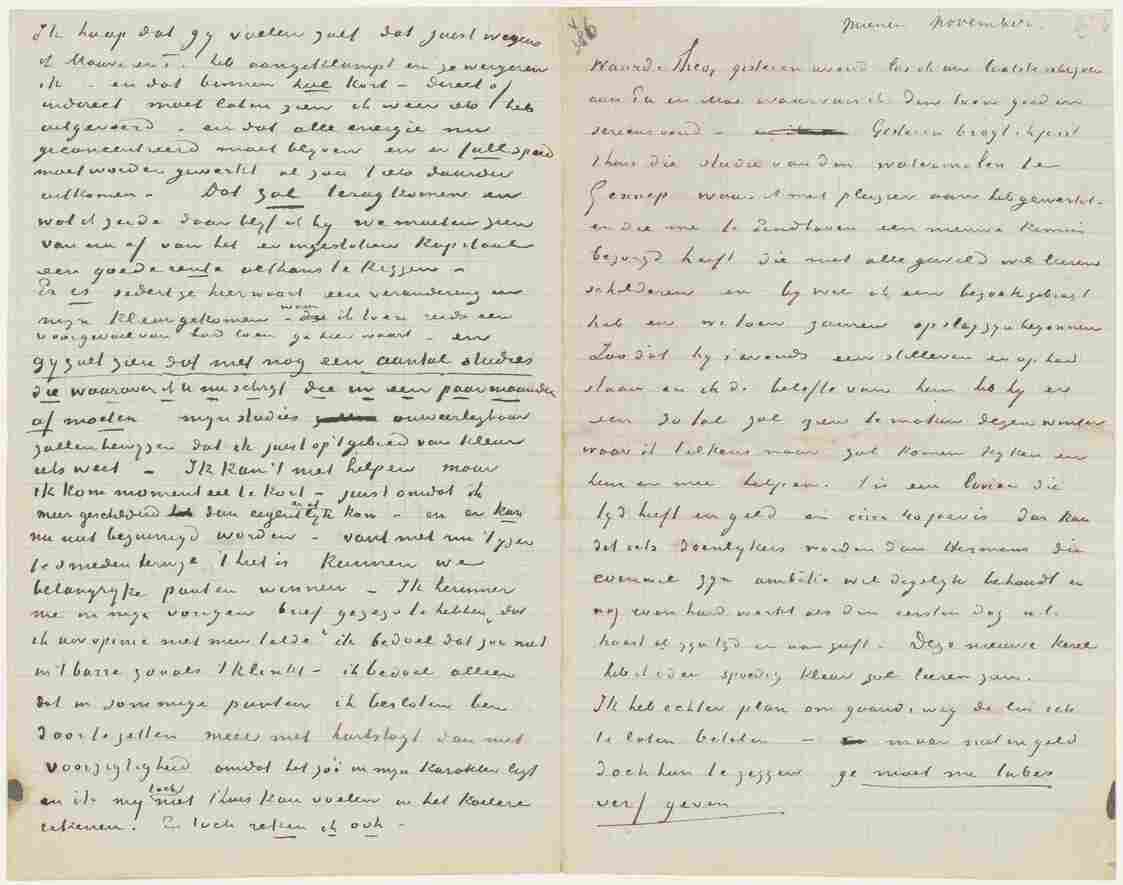 Ik hoop dat gy voelen zult dat juist wegens
ik Mauve en T. heb aangeklampt en ze weigeren
ik – en dat binnen heel kort – direct of
indirect moet laten zien ik weer iets heb
uitgevoerd – en dat alle energie nu
geconcentreerd moet blyven en er full speed
moet worden gewerkt al zou iets duurder
uitkomen – Dat zal terugkomen en
wat ik zeide daar blyf ik by we moeten zien
van nu af van het er ingestoken kapitaal
een goede rente althans te krygen –
Er is sedert ge hier waart een verandering in
myn kleur gekomen – waar ik toen reeds een
voorgevoel van had toen ge hier waart – en
gy zult zien dat met nog een aantal studies
die waarover ik u nu schryf die in een paar maanden
af moeten myn studies onweerlegbaar
zullen bewyzen dat ik juist op 't gebied van kleur
iets weet – Ik kan 't niet helpen maar
ik kom momenteel te kort – juist omdat ik
meer geschilderd heb dan eigentlyk kon – en er kan
nu niet bezuinigd worden – want met nu 't yzer
te smeden terwyl 't heet is kunnen we
belangryke punten winnen – Ik herinner
me in myn vorigen brief gezegd te hebben „dat
ik uw opinie niet meer telde“ ik bedoel dat zoo niet
in 't barre zooals 't klinkt – ik bedoel alleen
dat in sommige punten ik besloten ben
door te zetten meer met hartstogt dan met
voorzigtigheid omdat het zóó in myn karakter ligt
en ik my toch niet thuis kan voelen in het koelere
rekenen. En toch reken ik ook –
286
Nuenen November.
Waarde Theo, gisteren avond las ik uw laatste schryven
aan Pa en Moe waarvan ik den toon goed en
sereen vond – Gisteren bragt ik juist
thuis die studie van den watermolen te
Gennep waar ik met pleizier aan heb gewerkt –
en die me te Eindhoven een nieuwe kennis
bezorgd heeft die met alle geweld wil leeren
schilderen en by wie ik een bezoek gebragt
heb en we toen zamen op slag zyn begonnen
Zoodat hy s'avonds een stilleven er op had
staan en ik de belofte van hem heb hy er
een 30 tal zal zien te maken dezen winter
waar ik telkens naar zal komen kyken en
hem er mee helpen. 't is een looier die
tyd heeft en geld en circa 40 jaar is dus kan
dat iets doenlykers worden dan Hermans die
evenwel zyn ambitie wel degelyk behoudt en
nog even hard werkt als den eersten dag en
haast al zyn tyd er aan geeft – Deze nieuwe kerel
heb ik idee spoedig kleur zal leeren zien.
Ik heb echter plan om gaandeweg de lui iets
te laten betalen – maar niet in geld
doch hun te zeggen ge moet me tubes
verf geven